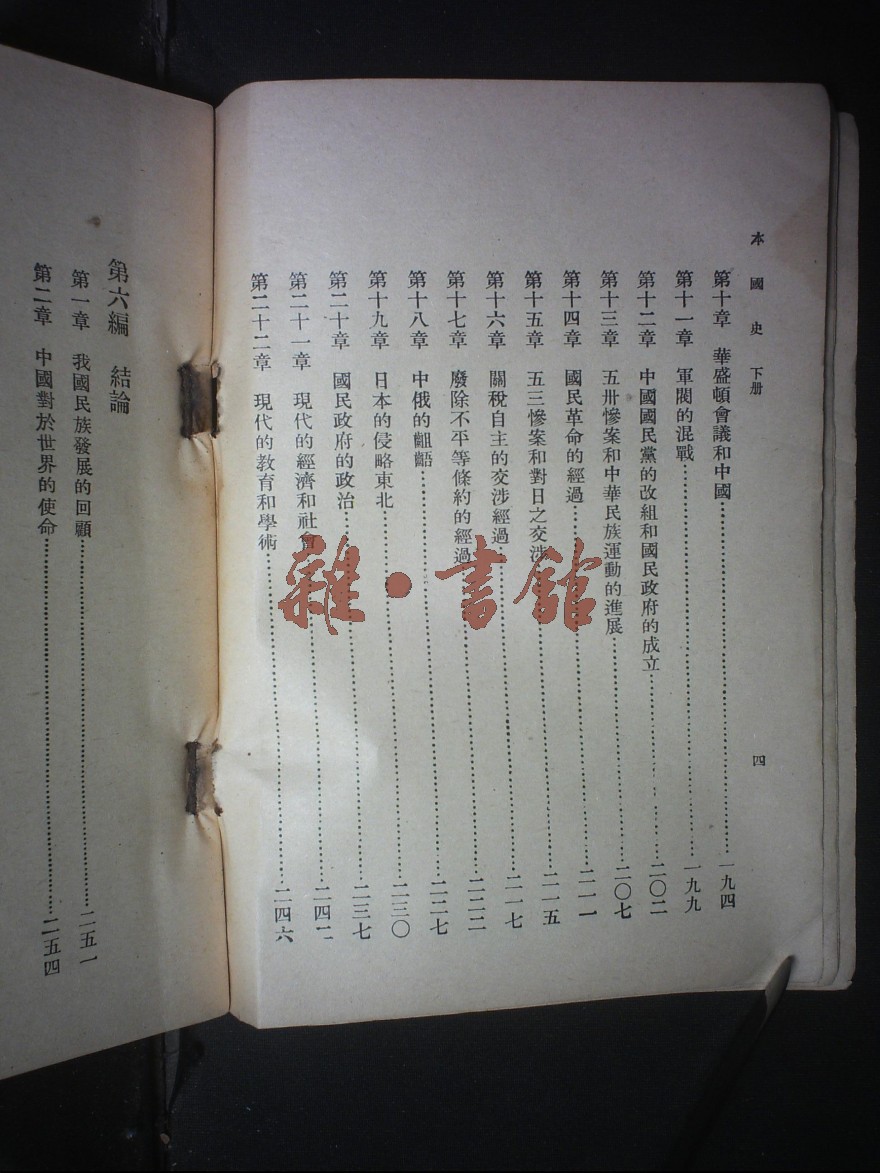 本國史 下册
四
第十章 華盛頓會議和中國……一九四
第十一章 軍閥的混戰……一九九
第十二章 中國國民黨的改組和國民政府的成立……二〇二
第十三章 五卅慘案和中華民族運動的進展……二〇七
第十四章 國民革命的經過……二一一
第十五章 五三慘案和對日之交涉……二一五
第十六章 關稅自主的交涉經過……二一七
第十七章 廢除不平等條約的經過……二二二
第十八章 中俄的齟齬……二二七
第十九章 日本的侵略東北……二三〇
第二十章 國民政府的政治……二三七
第二十一章 現代的經濟和社會……二四二
第二十二章 現代的教育和學術……二四六
第六編 結論
第一章 我國民族發展的回顧……二五一
第二章 中國對於世界的使命……二五四
雜·書館